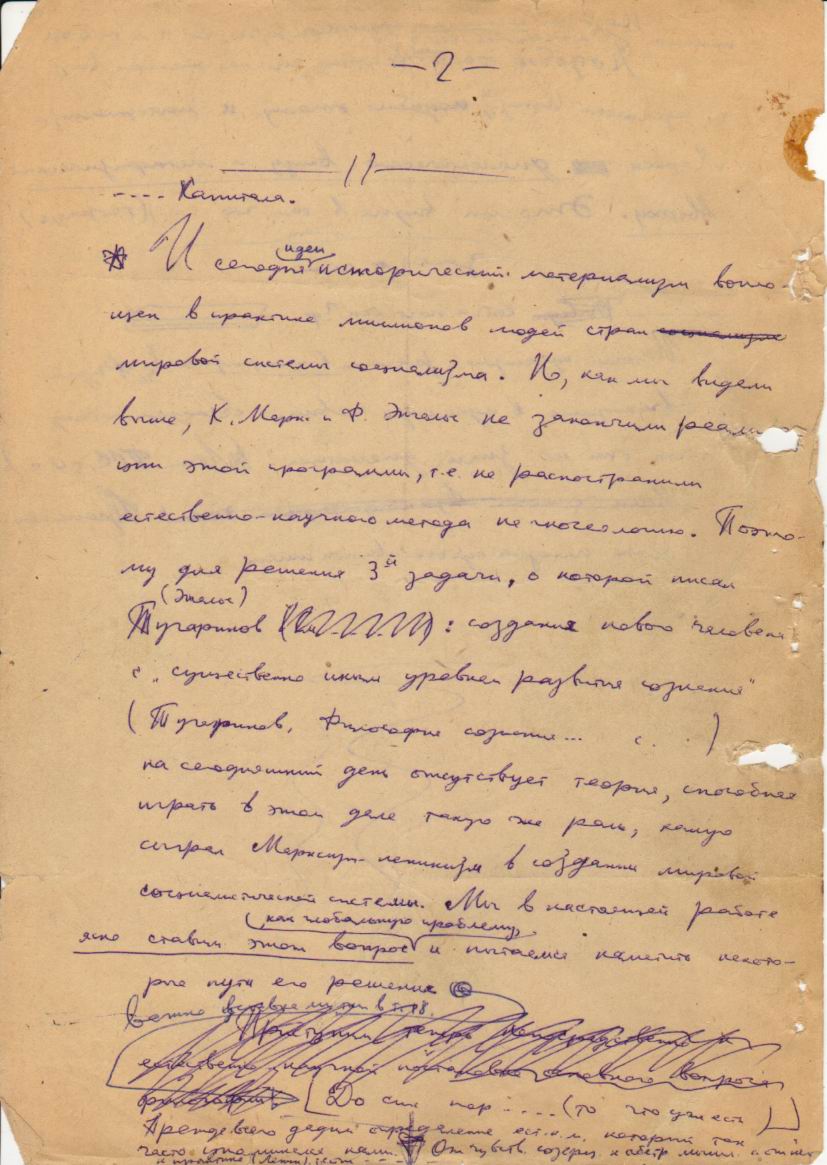 — 2 —
11
---- Капитала.
идеи
И сегодня исторический материализм вопло-
щен в практике миллионов людей стран социализма
мировой системы социализма. Но, как мы видели
выше, К. Маркс и Ф. Энгельс не закончили реали
ции этой программы, т.е. не распространили
естественно-научного метода на гносеологию. Поэто-
му для решения 3й задачи, о которой писал
(Энгельс)
Тугаринов : создания нового человека
с "существенно иным уровнем развития сознания"
(Тугаринов, Философия сознания... с. . )
на сегодняшний день отсутствует теория, способная
играть в этом деле такую же роль, какую
сыграл Марксизм-ленинизм в создании мировой
социалистической системы. Мы в настоящей работе
(как глобальную проблему)
ясно ставим этот вопрос и пытаемся наметить некото-
рые пути его решения
Приступим теперь непосредственно к
естественно научной постановке основного вопроса
философии. [До сих пор .... (то что уже есть)]
Прежде всего дадим определение ест.н.м. который так
часто упоминался нами. От чувств. созерц. к абстр. мышл.
и практике (Ленин)